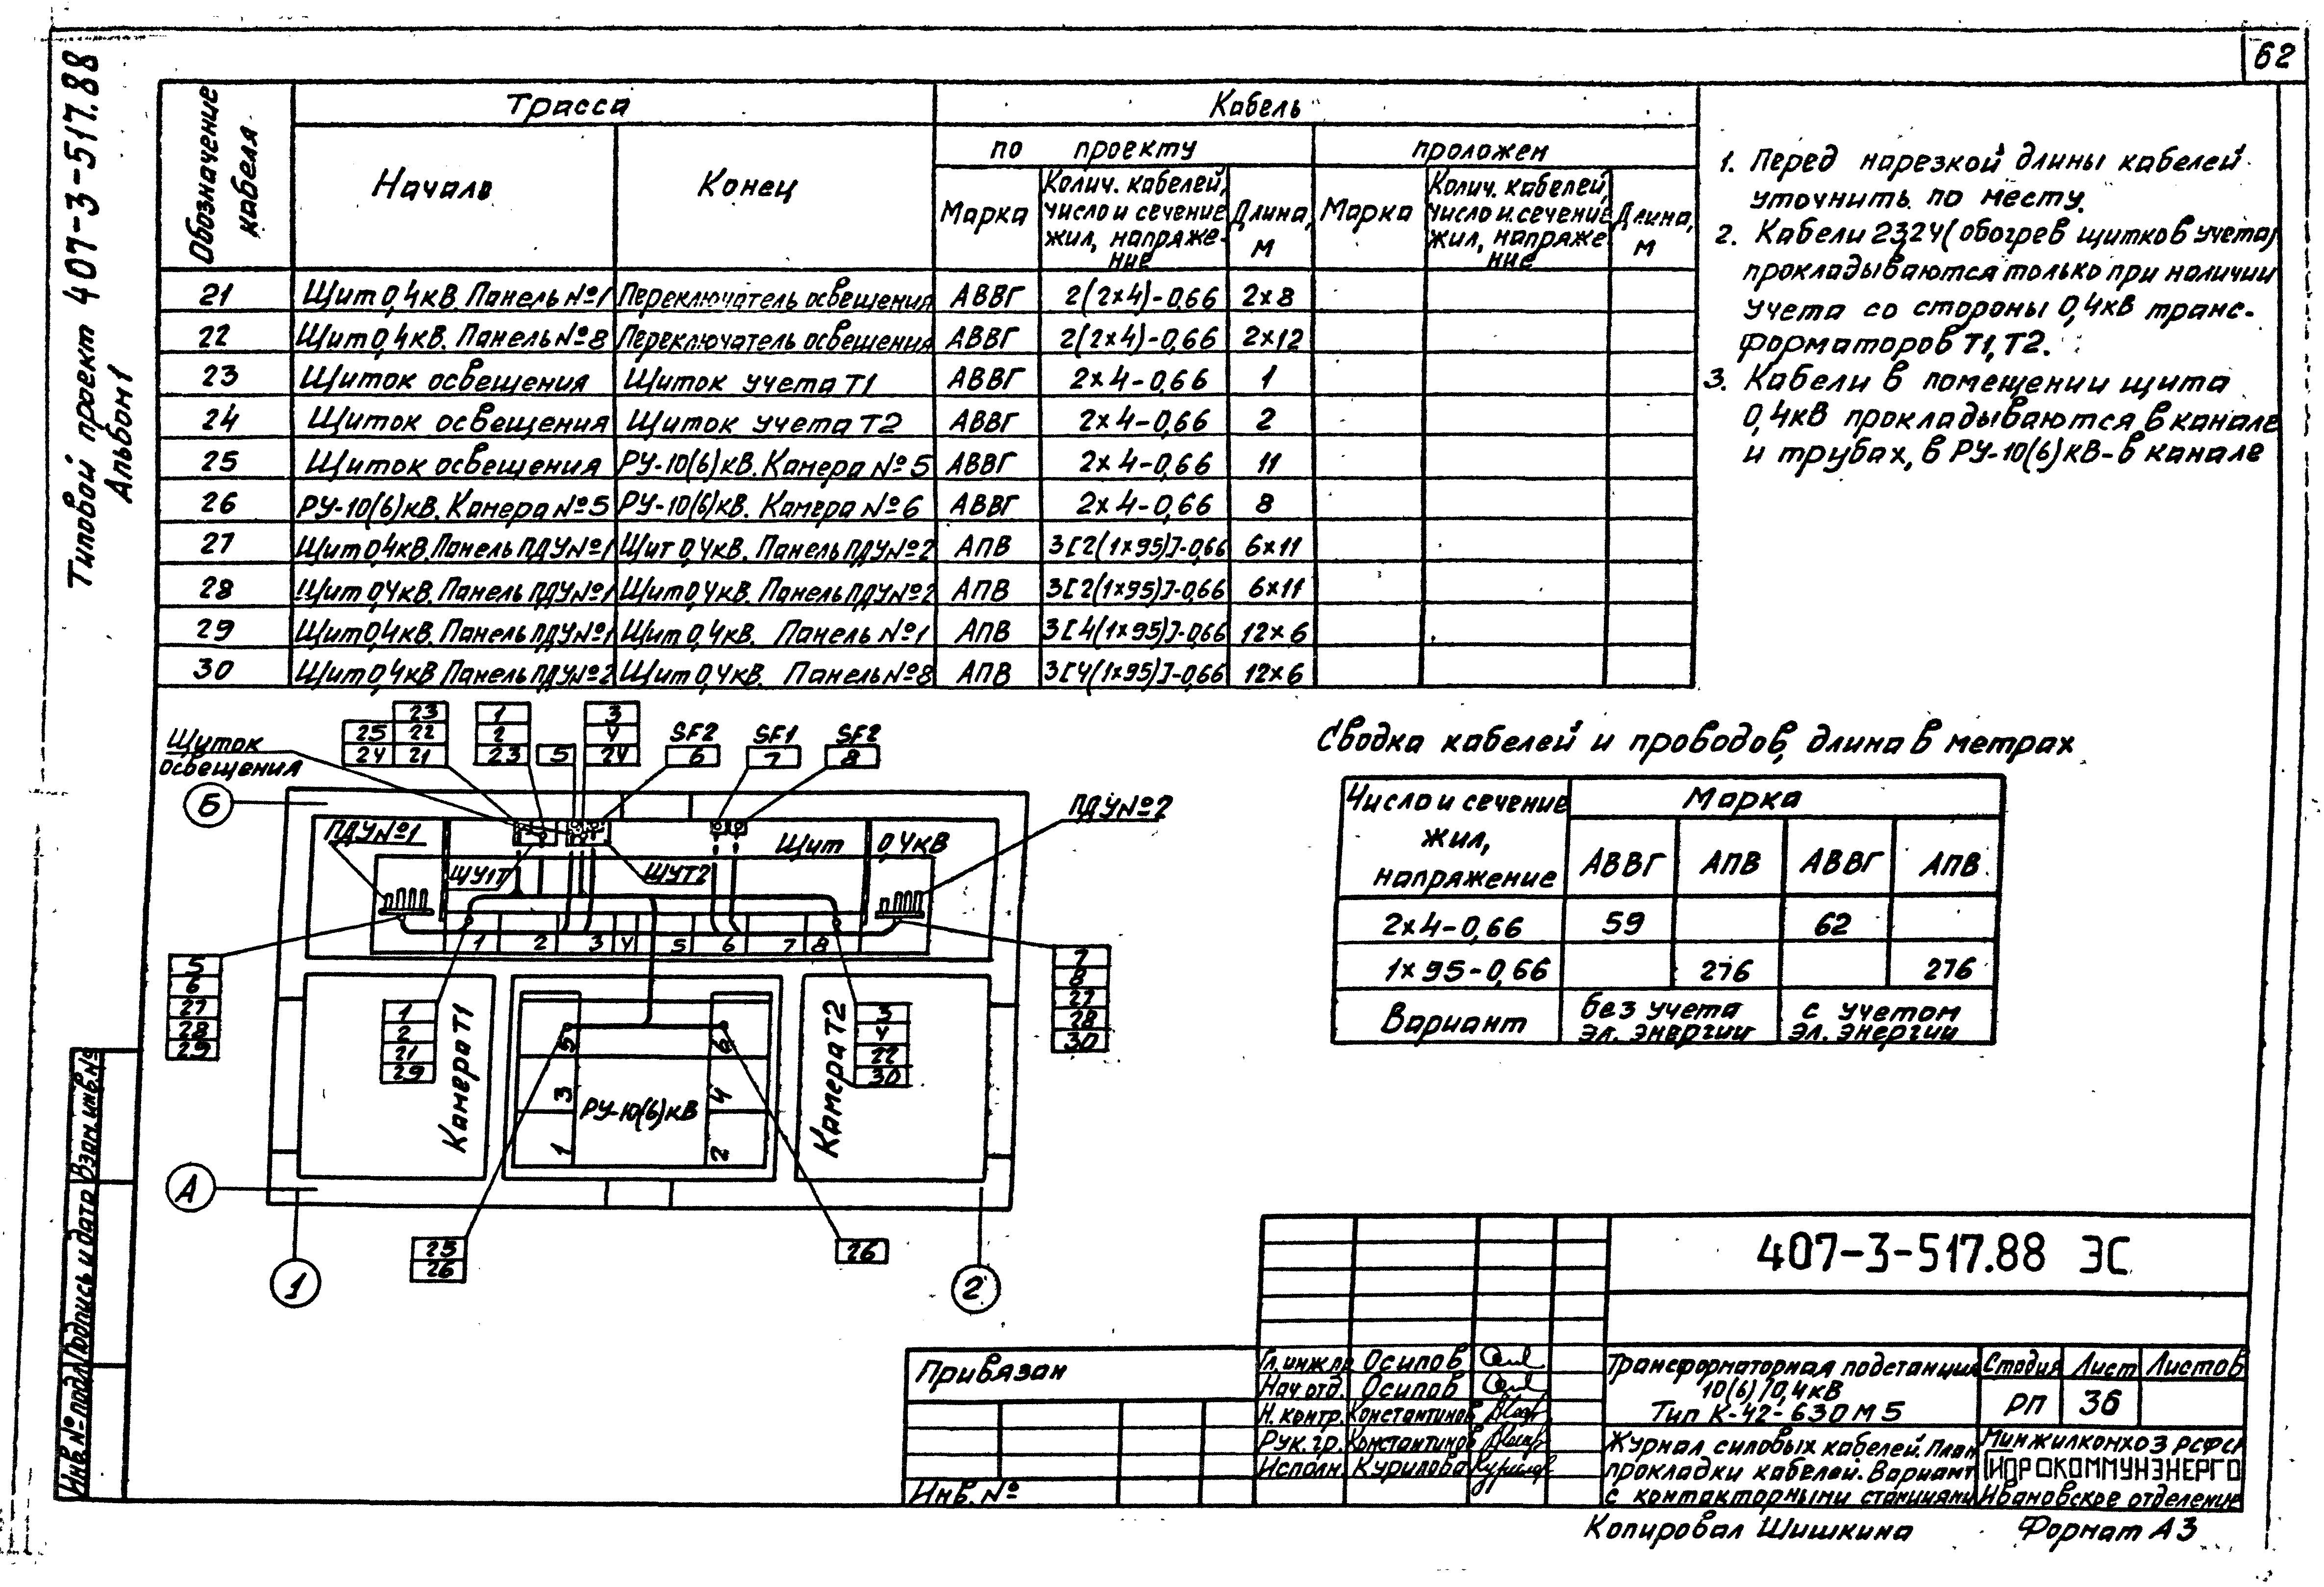 62
Типовой проект 407-3-517.88
Альбом 1
Обозначение кабеля
Трасса
Кабель
Начало
Конец
по проекту
проложен
Марка
Колич. кабелей, число и сечение жил, напряжение
Длина, м
Марка
Колич. кабелей, число и сечение жил, напряжение
Длина, м
21 Щит 0,4кВ. Панель №1 Переключатель освещения АВВГ 2(2×4)-0,66 2×8
22 Щит 0,4кВ. Панель №8 Переключатель освещения АВВГ 2(2×4)-0,66 2×12
23 Щиток освещения Щиток учета Т1 АВВГ 2×4-0,66 1
24 Щиток освещения Щиток учета Т2 АВВГ 2×4-0,66 2
25 Щиток освещения РУ-10(6)кВ. Камера №5 АВВГ 2×4-0,66 11
26 РУ-10(6)кВ. Камера №5 РУ-10(6)кВ. Камера №6 АВВГ 2×4-0,66 8
27 Щит 0,4кВ. Панель ПДУ№1 Щит 0,4кВ. Панель ПДУ№2 АПВ 3[2(1×95)]-0,66 6×11
28 Щит 0,4кВ. Панель ПДУ№1 Щит 0,4кВ. Панель ПДУ№2 АПВ 3[2(1×95)]-0,66 6×11
29 Щит 0,4кВ. Панель ПДУ№1 Щит 0,4кВ. Панель №1 АПВ 3[4(1×95)]-0,66 12×6
30 Щит 0,4кВ Панель ПДУ№2 Щит 0,4кВ. Панель №8 АПВ 3[4(1×95)]-0,66 12×6
1. Перед нарезкой длины кабелей
уточнить по месту.
2. Кабели 23,24 (обогрев щитков учета)
прокладываются только при наличии
учета со стороны 0,4кВ транс-
форматоров Т1, Т2.
3. Кабели в помещении щита
0,4кВ прокладываются в канале
и трубах, в РУ-10(6)кВ-в канале
23
25 22
24 21
1
2
23
5
3
4
24
SF2
6
SF1
7
SF2
8
Щиток
освещения
Б
ПДУ№1
ПДУ№2
Щит 0,4кВ
ЩУ1Т
ЩУТ2
1 2 3 4 5 6 7 8
5
6
27
28
29
1
2
21
29
3
4
22
30
7
8
27
28
30
Камера Т1
Камера Т2
5 6
3 4
1 2
РУ-10(6)кВ
А
25
26
26
1
2
Сводка кабелей и проводов, длина в метрах
Число и сечение жил, напряжение
Марка
АВВГ АПВ АВВГ АПВ
2×4-0,66 59 62
1×95-0,66 276 276
Вариант
без учета эл. энергии
с учетом эл. энергии
407-3-517.88 ЭС
Привязан
Инв. №
Гл. инж. пр. Осипов
Нач. отд. Осипов
Н. контр. Константинов
Рук. гр. Константинов
Исполн. Курилова
Трансформаторная подстанция
10(6)/0,4кВ
Тип К-42-630 М5
Стадия Лист Листов
РП 36
Журнал силовых кабелей. План
прокладки кабелей. Вариант
с контакторными станциями
Минжилкомхоз РСФСР
ГИПРОКОММУНЭНЕРГО
Ивановское отделение
Копировал Шишкина
Формат А3
Инв. № подл.
Подпись и дата
Взам. инв. №